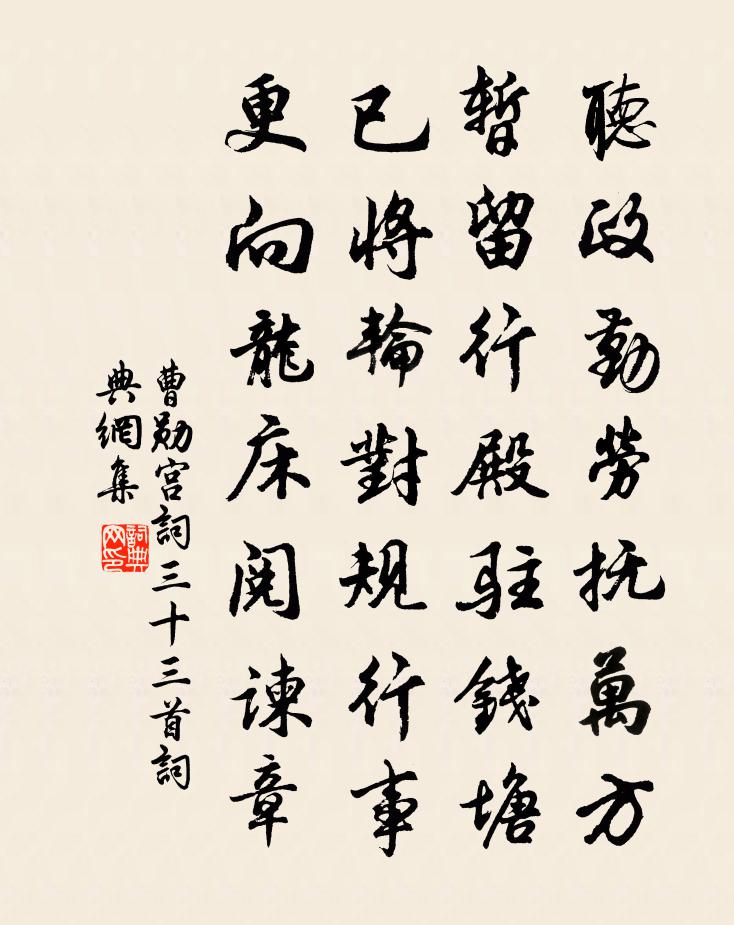 聽政勤勞抚萬方
暫留行殿駐錢塘
已將輪對規行事
更向龍床閱諫章
曹勛宮詞三十三首詞
典網集
詞典网印